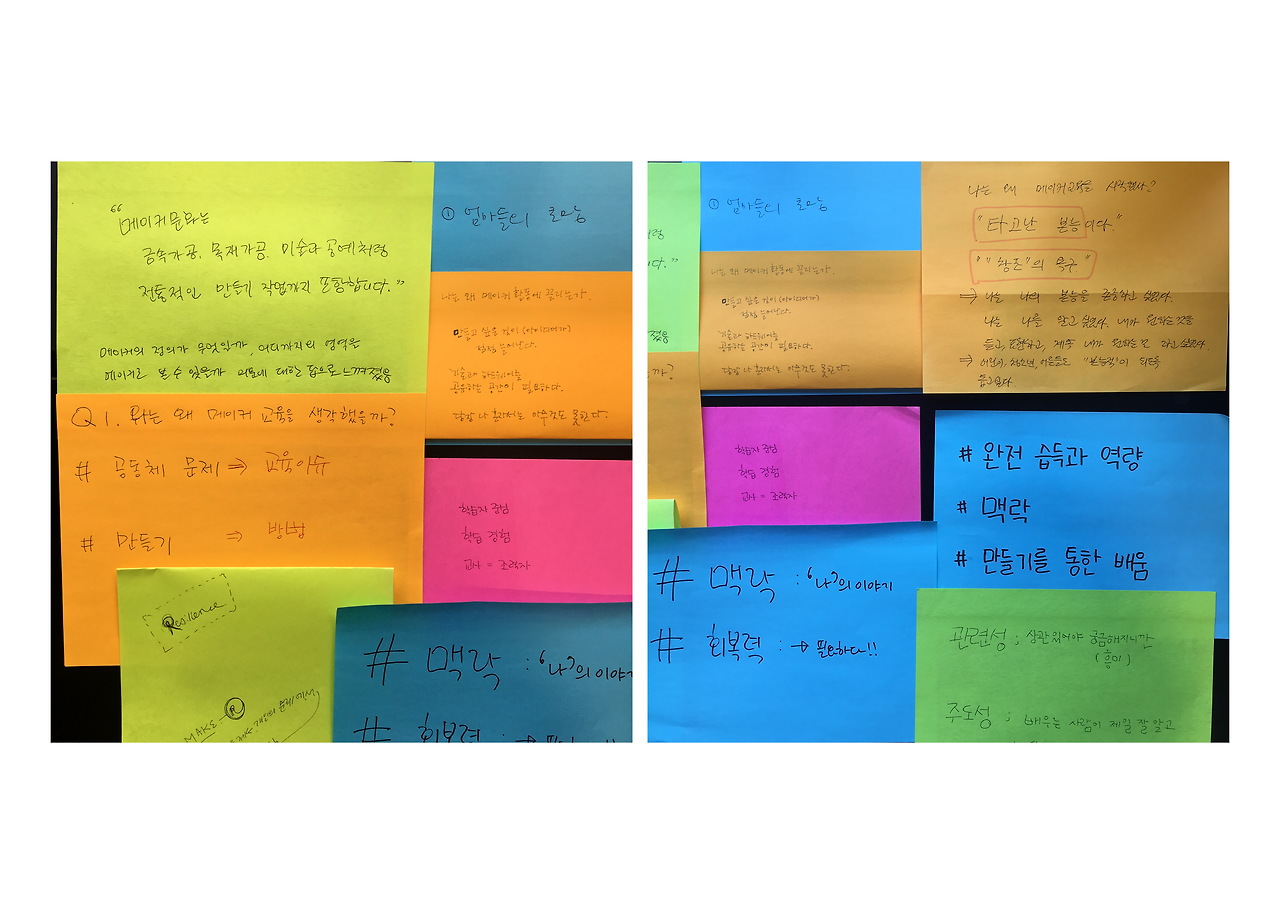 "메이커문화는
금속가공, 목재가공, 미술과 공예처럼
전통적인 만들기 작업까지 포함합니다."
메이커의 정의가 무엇일까, 어디까지의 영역을
메이커라 볼 수 있을까 의문에 대한 답으로 느껴졌음
① 엄마들의 로망
나는 왜 메이커 활동에 끌리는가.
만들고 싶은 것이 (아이디어가)
점점 늘어난다.
기술과 하드웨어를
공유하는 공간이 필요하다.
당장 나 혼자서는 아무것도 못한다.
Q1. 나는 왜 메이커 교육을 생각했을까?
# 공동체 문제 ⇒ 교육이슈
# 만들기 ⇒ 방법
학습자 중심
학습 경험
교사 = 조력자
Resilience
MAKE - R
개인의 문제에서
# 맥락 : '나'의 이야
# 회복력 : →
① 엄마들의 로망
나는 왜 메이커 활동에 끌리는가.
만들고 싶은 것이 (아이디어가)
점점 늘어난다.
기술과 하드웨어를
공유하는 공간이 필요하다.
당장 나 혼자서는 아무것도 못한다.
나는 왜 메이커교육을 시작했나?
"타고난 본능이다."
""창조"의 욕구"
⇒ 나는 나의 본능을 존중하고 싶었다.
나는 나를 알고 싶었다. 내가 원하는 것을
듣고, 표현하고, 계속 내가 원하는 걸 하고 싶었다.
⇒ 어린이, 청소년, 어른들도 "본능적"이 되도록
돕고싶다
학습자 중심
학습 경험
교사 = 조력자
# 완전 습득과 역량
# 맥락
# 만들기를 통한 배움
# 맥락 : '나'의 이야기
# 회복력 : → 필요하다!!
관련성 ; 상관있어야 궁금해지니깐
(흥미)
주도성 ; 배우는 사람이 제일 잘 알고